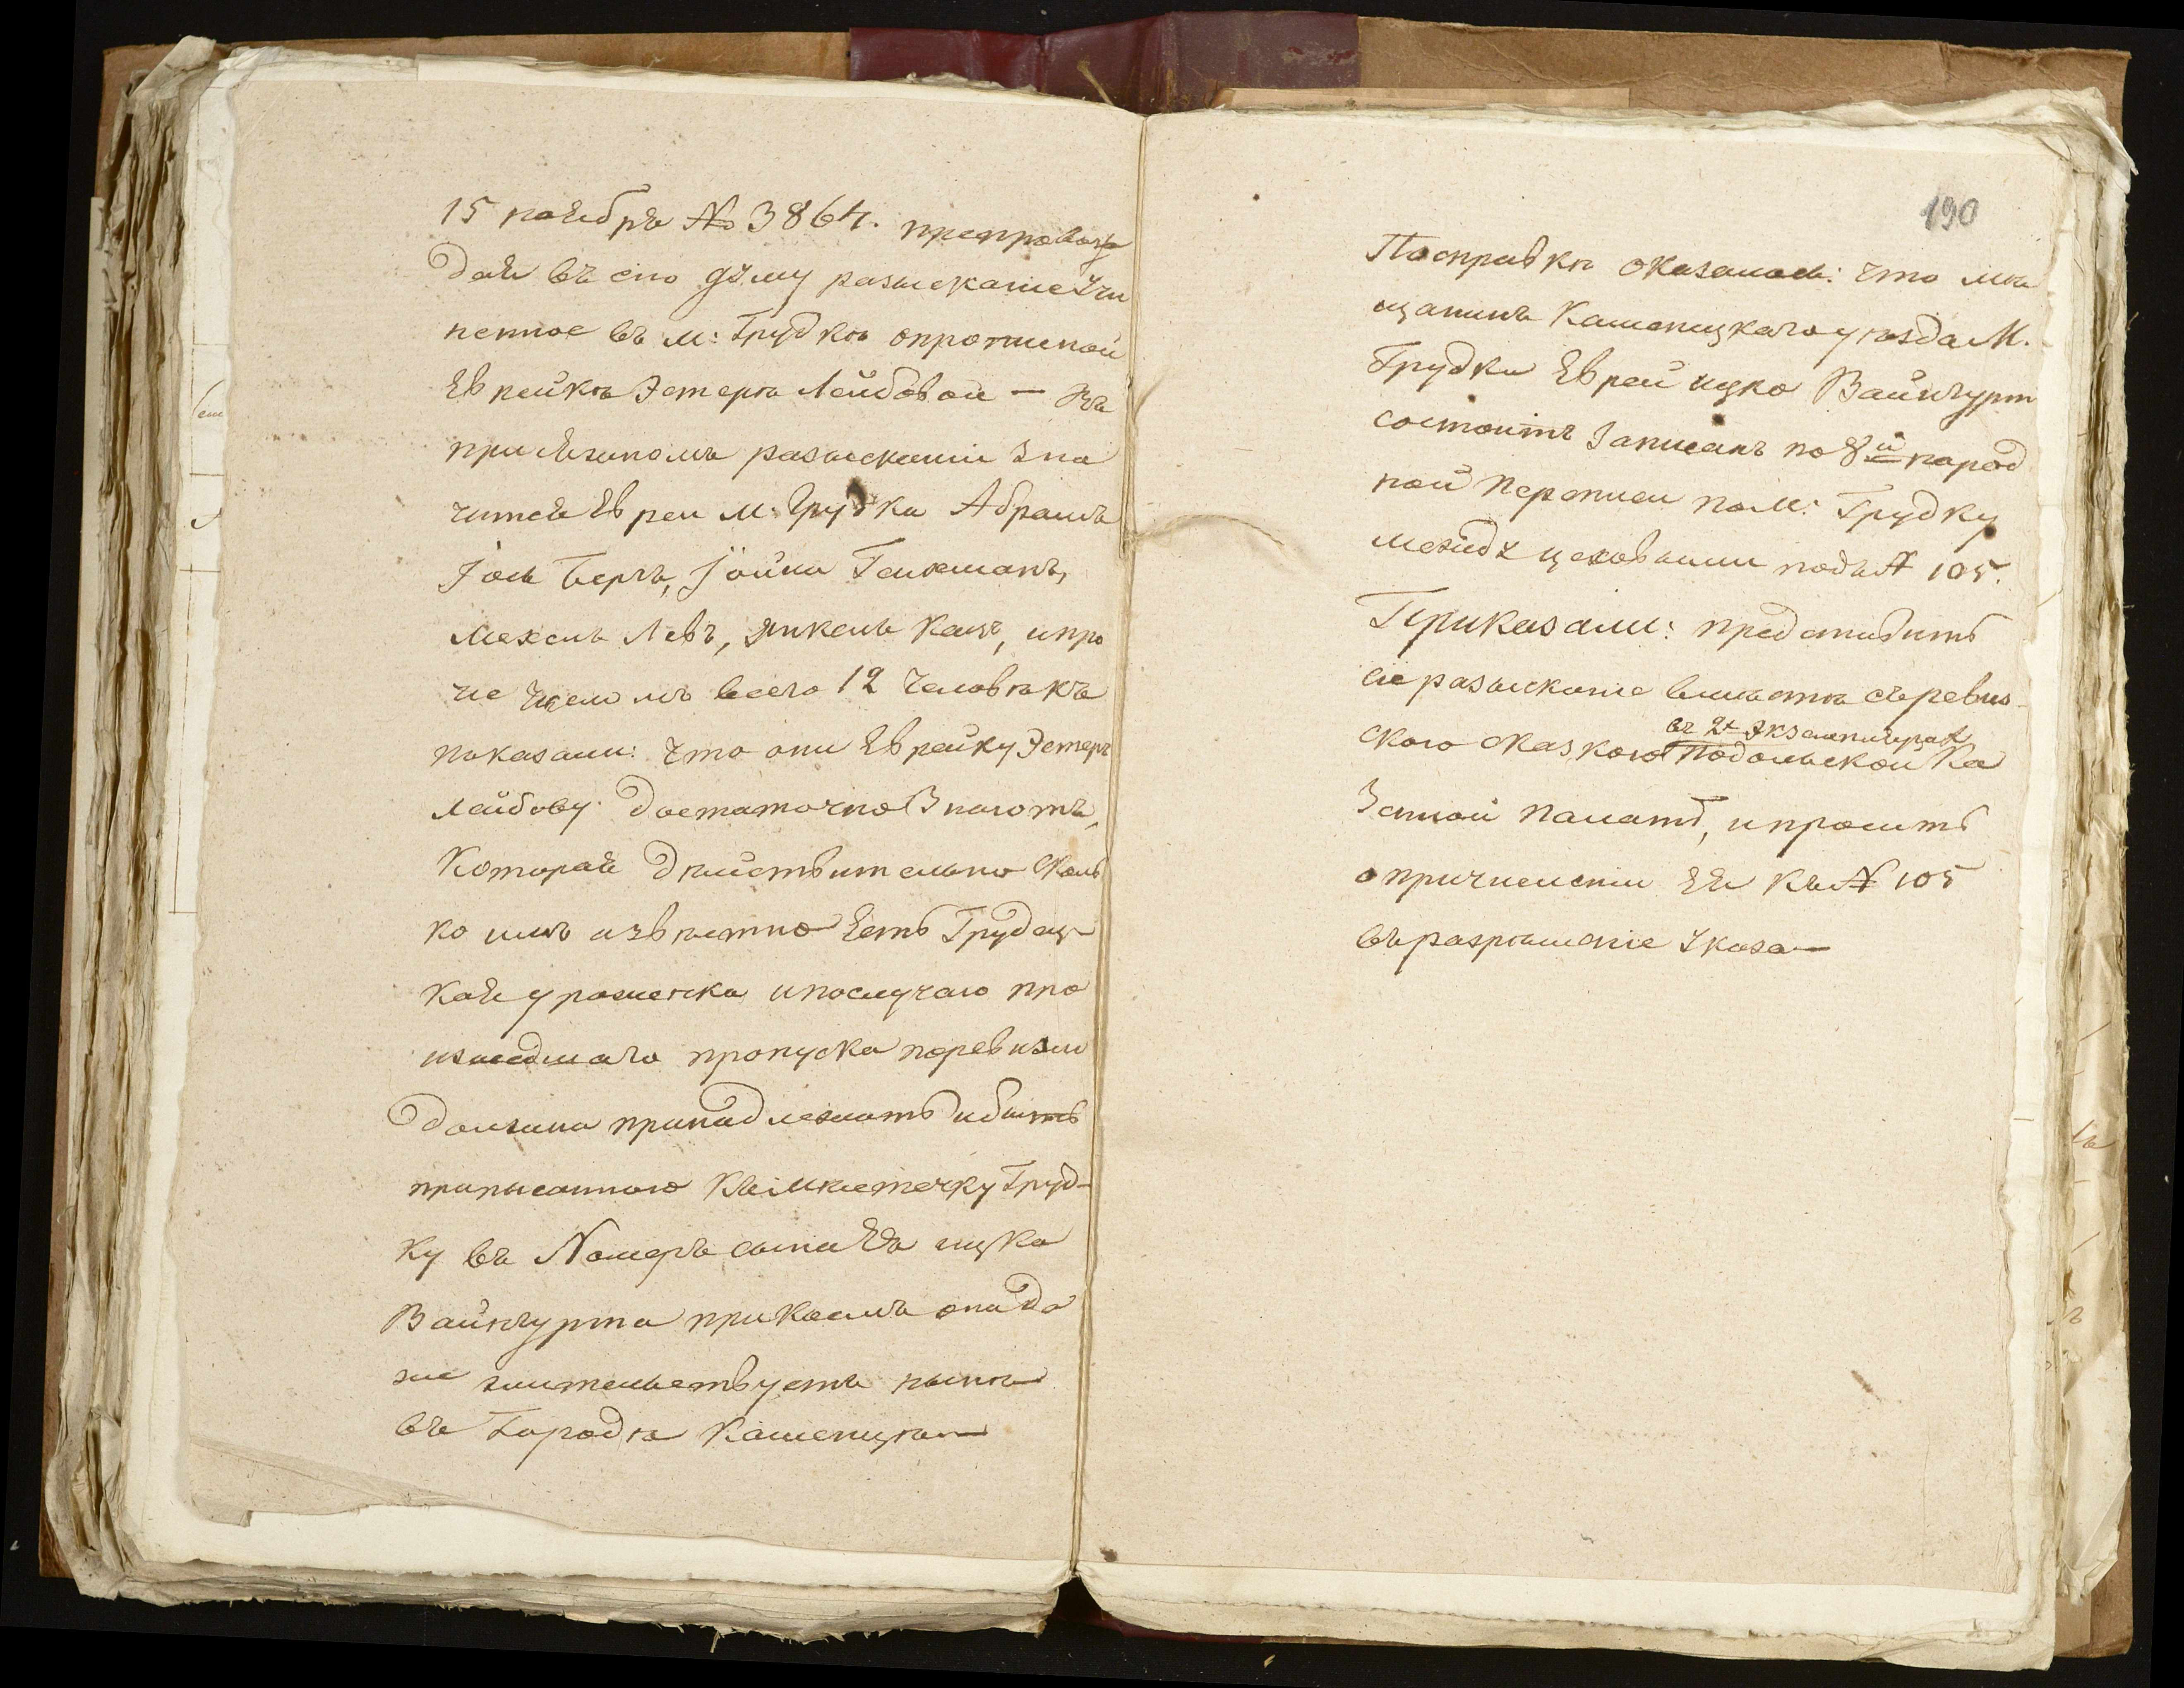 15 ноября № 3864. препровож
дая въ сию думу разысканіе учи
ненное въ м: Грудкѣ опропиской
Еврейкѣ Эстерѣ Лейбовой — Въ
присяжномъ разысканіи зна
чится Евреи м: Грудка Абрамъ
Іось Беръ, Іойна Гельманъ,
Мехель Левъ, Янкель Кацъ, ипро
чіе числомъ всего 12 человѣкъ
показали: что они Еврейку Эстеръ
Лейбову достаточно знаютъ,
Которая дѣйствительно сколь
ко имъ извѣстно Есть Грудец-
кая уроженка ипослучаю про
изшедшаго пропуска поревизіи
должна принадлежать ибыть
приписанною Кымѣстечку Груд-
ку въ Номеръ сына Ея ицка
Вайнгурта прикоемъ она да
же жительствуетъ нынѣ
въ Городѣ Каменцѣ —
190
Посправкѣ оказалось: что мѣ
щанинъ Каменецкаго уѣзда М.
Грудка Еврей ицко Вайнгурт
состоитъ записанъ по 8й народ
ной переписи пом: Грудку
между цеховыми подъ № 105.
Приказали: представить
сіе разысканіе вмѣстѣ съревиз
въ 2х экземплярах
скою сказкою Подольской Ка
зенной палатѣ, ипросить
опричисленіи Ея къ № 105
въразрѣшеніе указа —